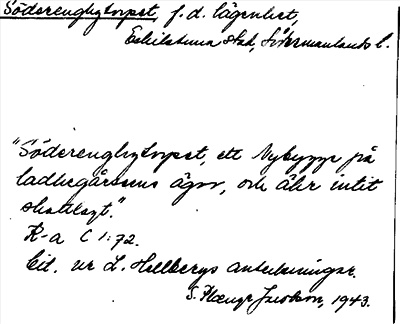 Söderenghytorpet, f.d. lägenhet,
Eskilstuna stad, Södermanlands l.
"Söderenghytorpet, ett Nybygge på
ladhegårdsens ägor, och är intit
skattlagt."
K-a C 1:72.
Cit. ur L. Hellbergs anteckningar.
S. Jacobson, 1943.